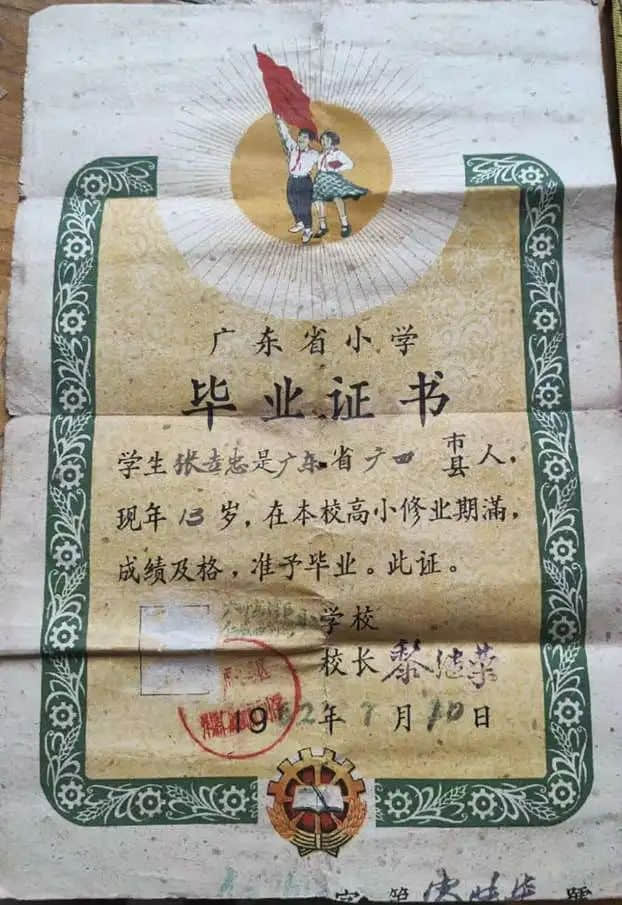 广东省小学
毕业证书
学生张孝忠是广东省广 市县人，
现年13岁，在本校高小修业期满，
成绩及格，准予毕业。此证。
学校
校长黎
1962年7月10日
字第 號